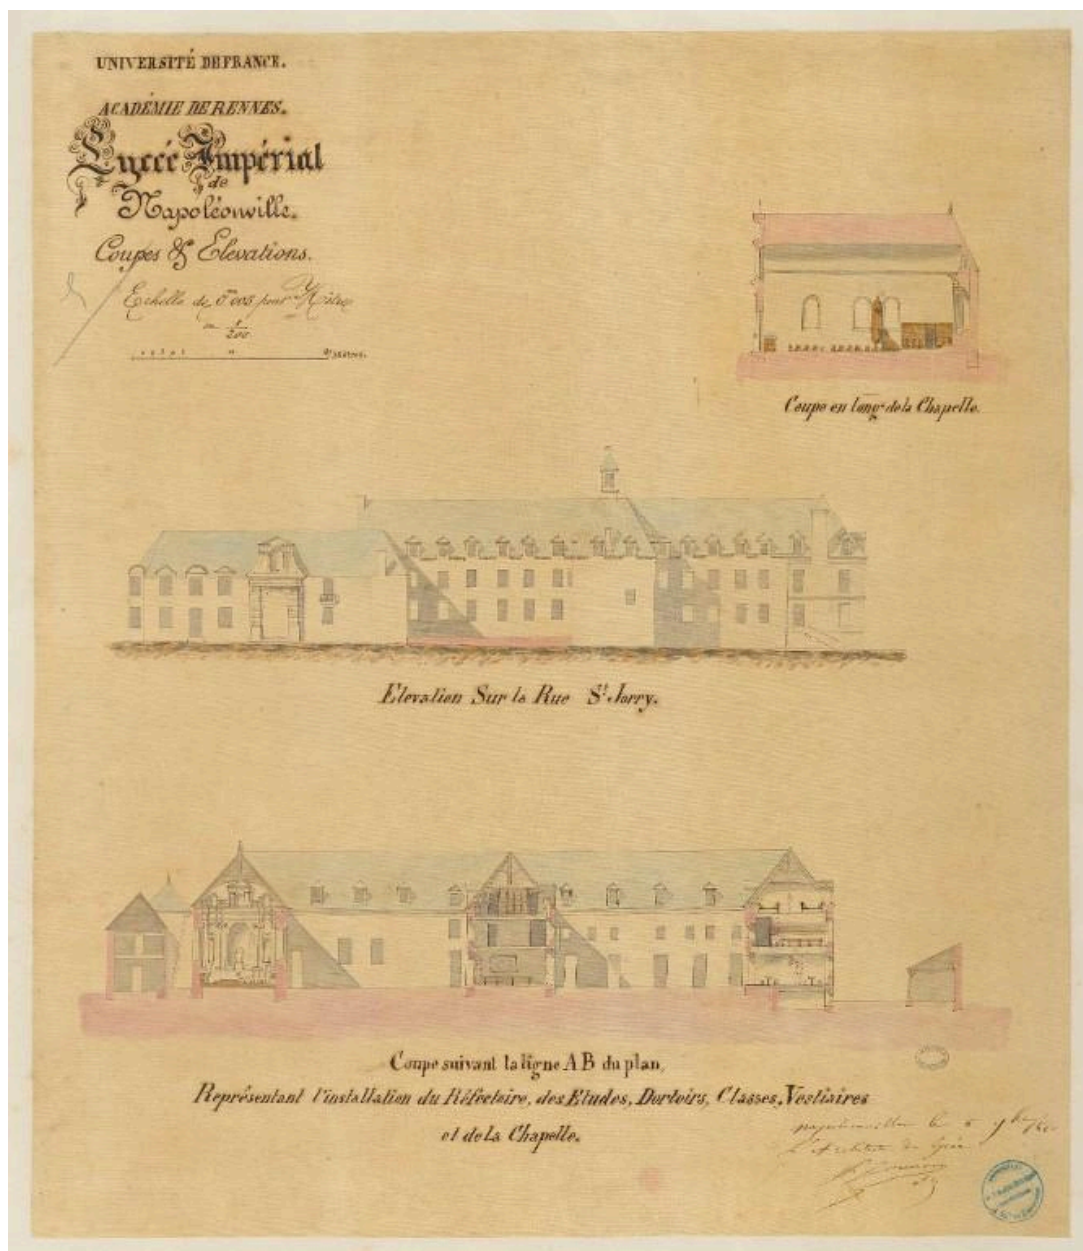 UNIVERSITÉ DE FRANCE.
ACADÉMIE DE RENNES.
Lycée Impérial
de
Napoléonville.
Coupes & Elévations.
Echelle de 0m005 pour Mètre
ou 1/200
Coupe en longr de la Chapelle.
Elevation Sur la Rue St Jorry.
Coupe suivant la ligne A B du plan,
Représentant l'installation du Réfectoire, des Etudes, Dortoirs, Classes, Vestiaires
et de la Chapelle.
Napoléonville le 6 9bre
L'Architecte du Lycée